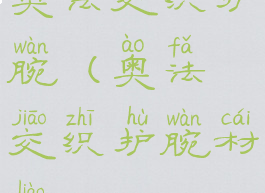 wàn ào fǎ
腕（奥法
jiāo zhī hù wàn cái
交织护腕材
liào